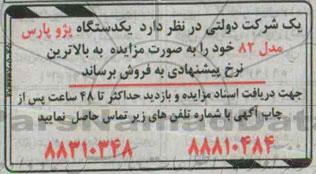 یک شرکت دولتی در نظر دارد یکدستگاه پژو پارس
مدل ۸۲ خود را به صورت مزایده به بالاترین
نرخ پیشنهادی به فروش برساند
جهت دریافت اسناد مزایده و بازدید حداکثر تا ۴۸ ساعت پس از
چاپ آگهی با شماره تلفن های زیر تماس حاصل نمایید
۸۸۸۱۰۴۸۴ ۸۸۳۱۰۳۴۸
ParsNamadData